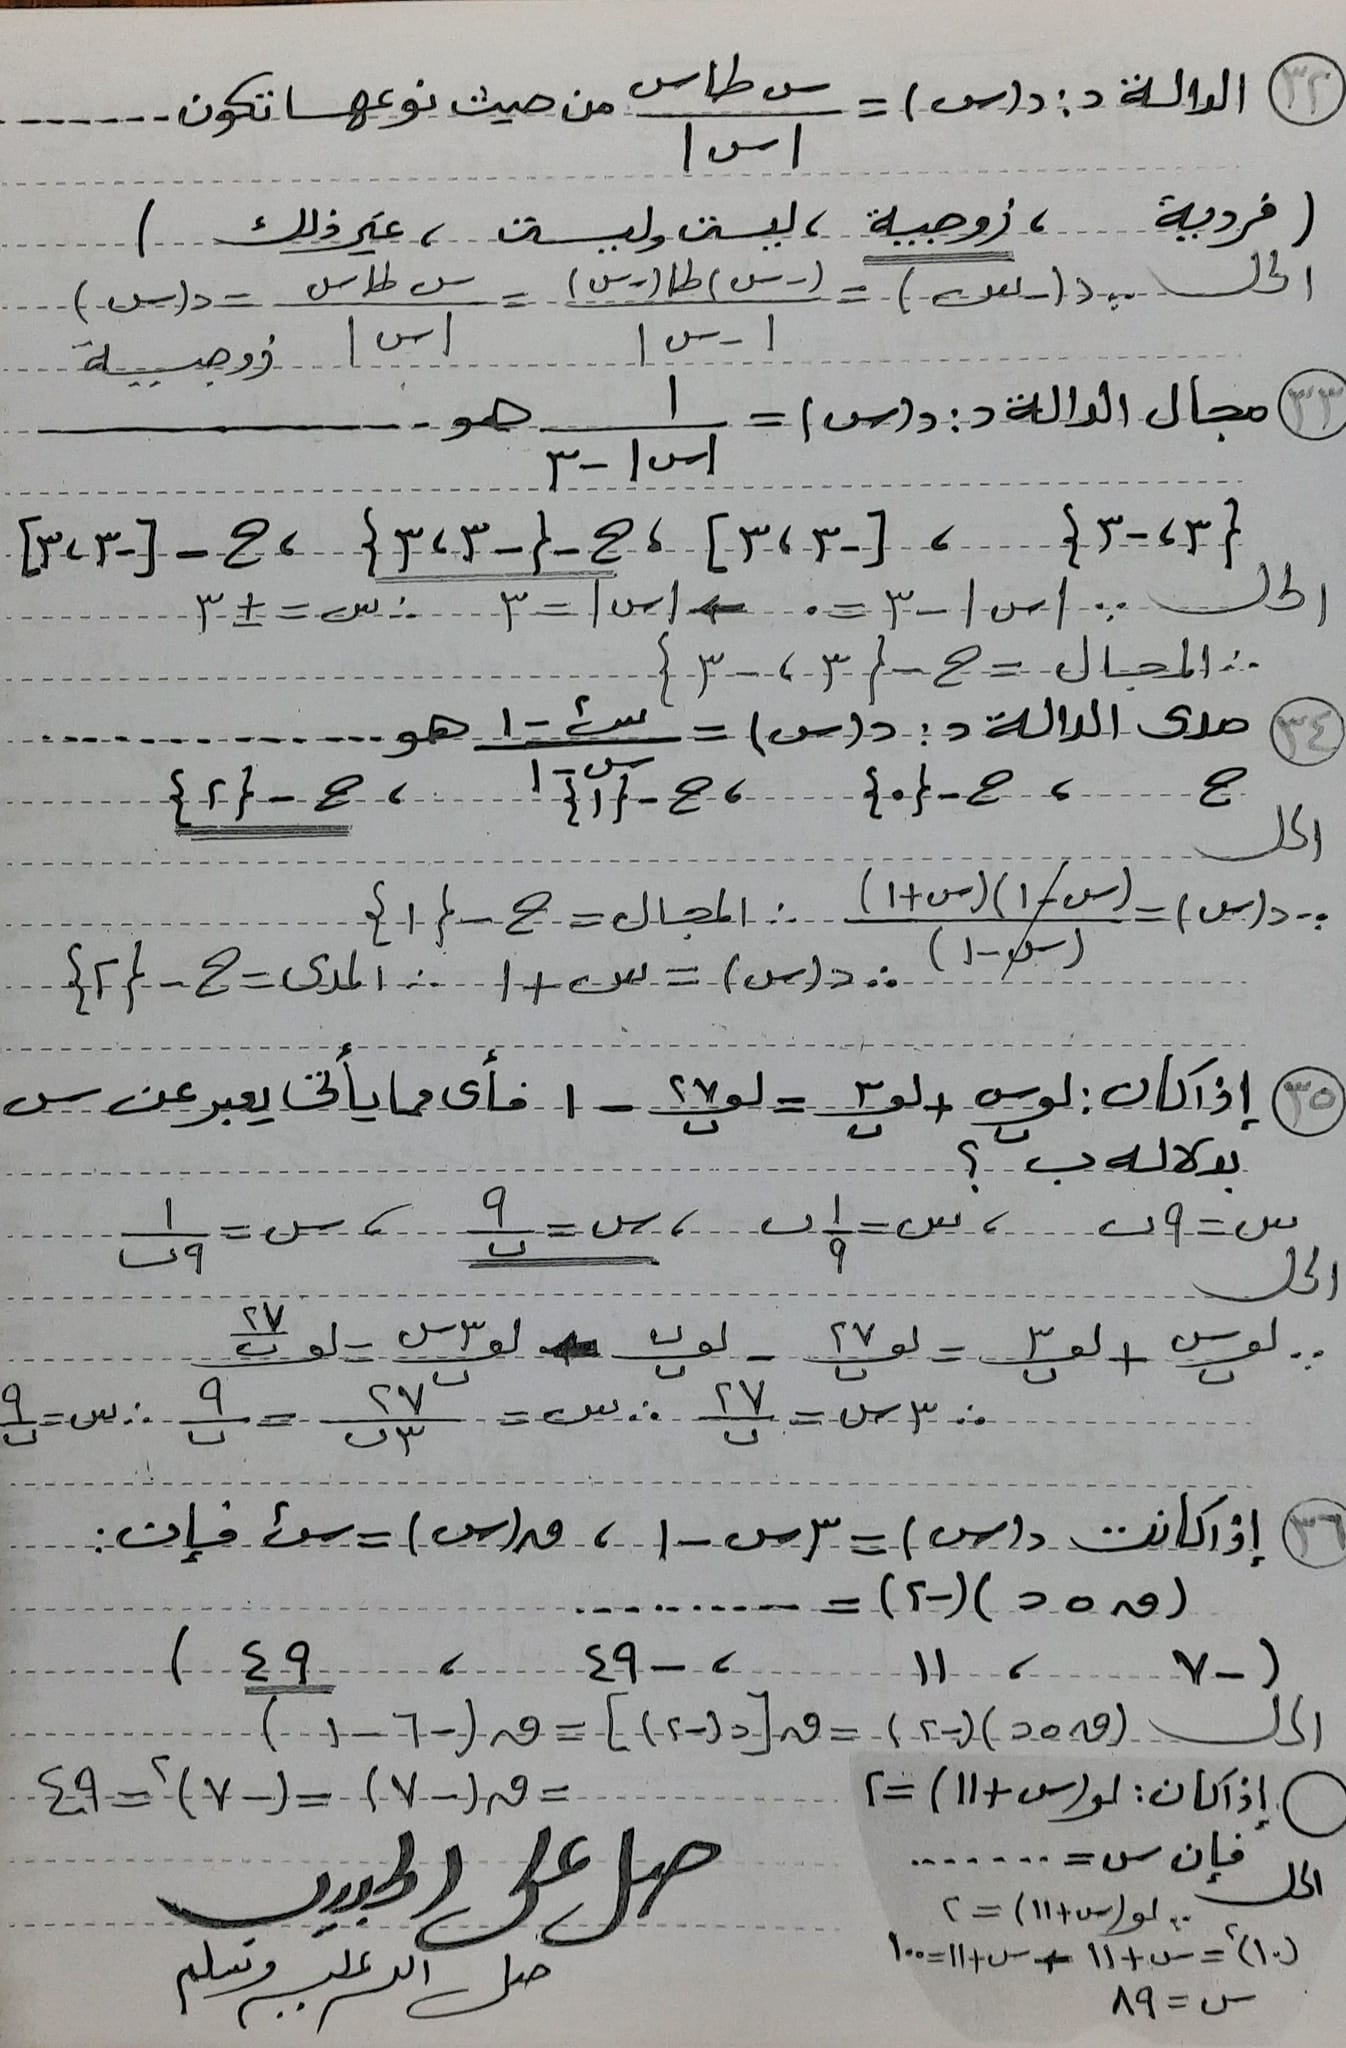 ٣٢ الدالة د : د(س) = س طاس / |س| من حيث نوعها تكون ........
( فردية ، زوجية ، ليست وليست ، غير ذلك )
الحل ∵ د(-س) = (-س) طا(-س) / |-س| = س طاس / |س| = د(س)
زوجية
٣٣ مجال الدالة د : د(س) = ١ / |س| - ٣ هو ........
{٣ ، -٣} ، [-٣ ، ٣] ، ح - {-٣ ، ٣} ، ح - [-٣ ، ٣]
الحل ∵ |س| - ٣ = ٠ ← |س| = ٣ ∴ س = ± ٣
∴ المجال = ح - {٣ ، -٣}
٣٤ مدى الدالة د : د(س) = س² - ١ / س - ١ هو ........
ح ، ح - {٠} ، ح - {١} ، ح - {٢}
الحل
∵ د(س) = (س - ١)(س + ١) / (س - ١) ∴ المجال = ح - {١}
∴ د(س) = س + ١ ∴ المدى = ح - {٢}
٣٥ إذا كان : لو_ب س + لو_ب ٣ = لو_ب ٢٧ - ١ فأى مما يأتى يعبر عن س
بدلاله ب ؟
س = ٩ب ، س = ١/٩ ب ، س = ٩/ب ، س = ١/٩ب
الحل
∵ لو_ب س + لو_ب ٣ = لو_ب ٢٧ - لو_ب ب ← لو_ب ٣س = لو_ب ٢٧/ب
∴ ٣س = ٢٧/ب ∴ س = ٢٧/٣ب = ٩/ب ∴ س = ٩/ب
٣٦ إذا كانت د(س) = ٣س - ١ ، ق(س) = س² فإن :
(ق ٥ د)(-٢) = ........
( -٧ ، ١١ ، -٤٩ ، ٤٩ )
الحل (ق٥د)(-٢) = ق[د(-٢)] = ق(-٦ - ١)
= ق(-٧) = (-٧)² = ٤٩
إذا كان : لو(س + ١١) = ٢
فإن س = ........
الحل
∵ لو(س + ١١) = ٢
(١٠)² = س + ١١ ← س + ١١ = ١٠٠
س = ٨٩
صل على الحبيب
صلى الله عليه وسلم